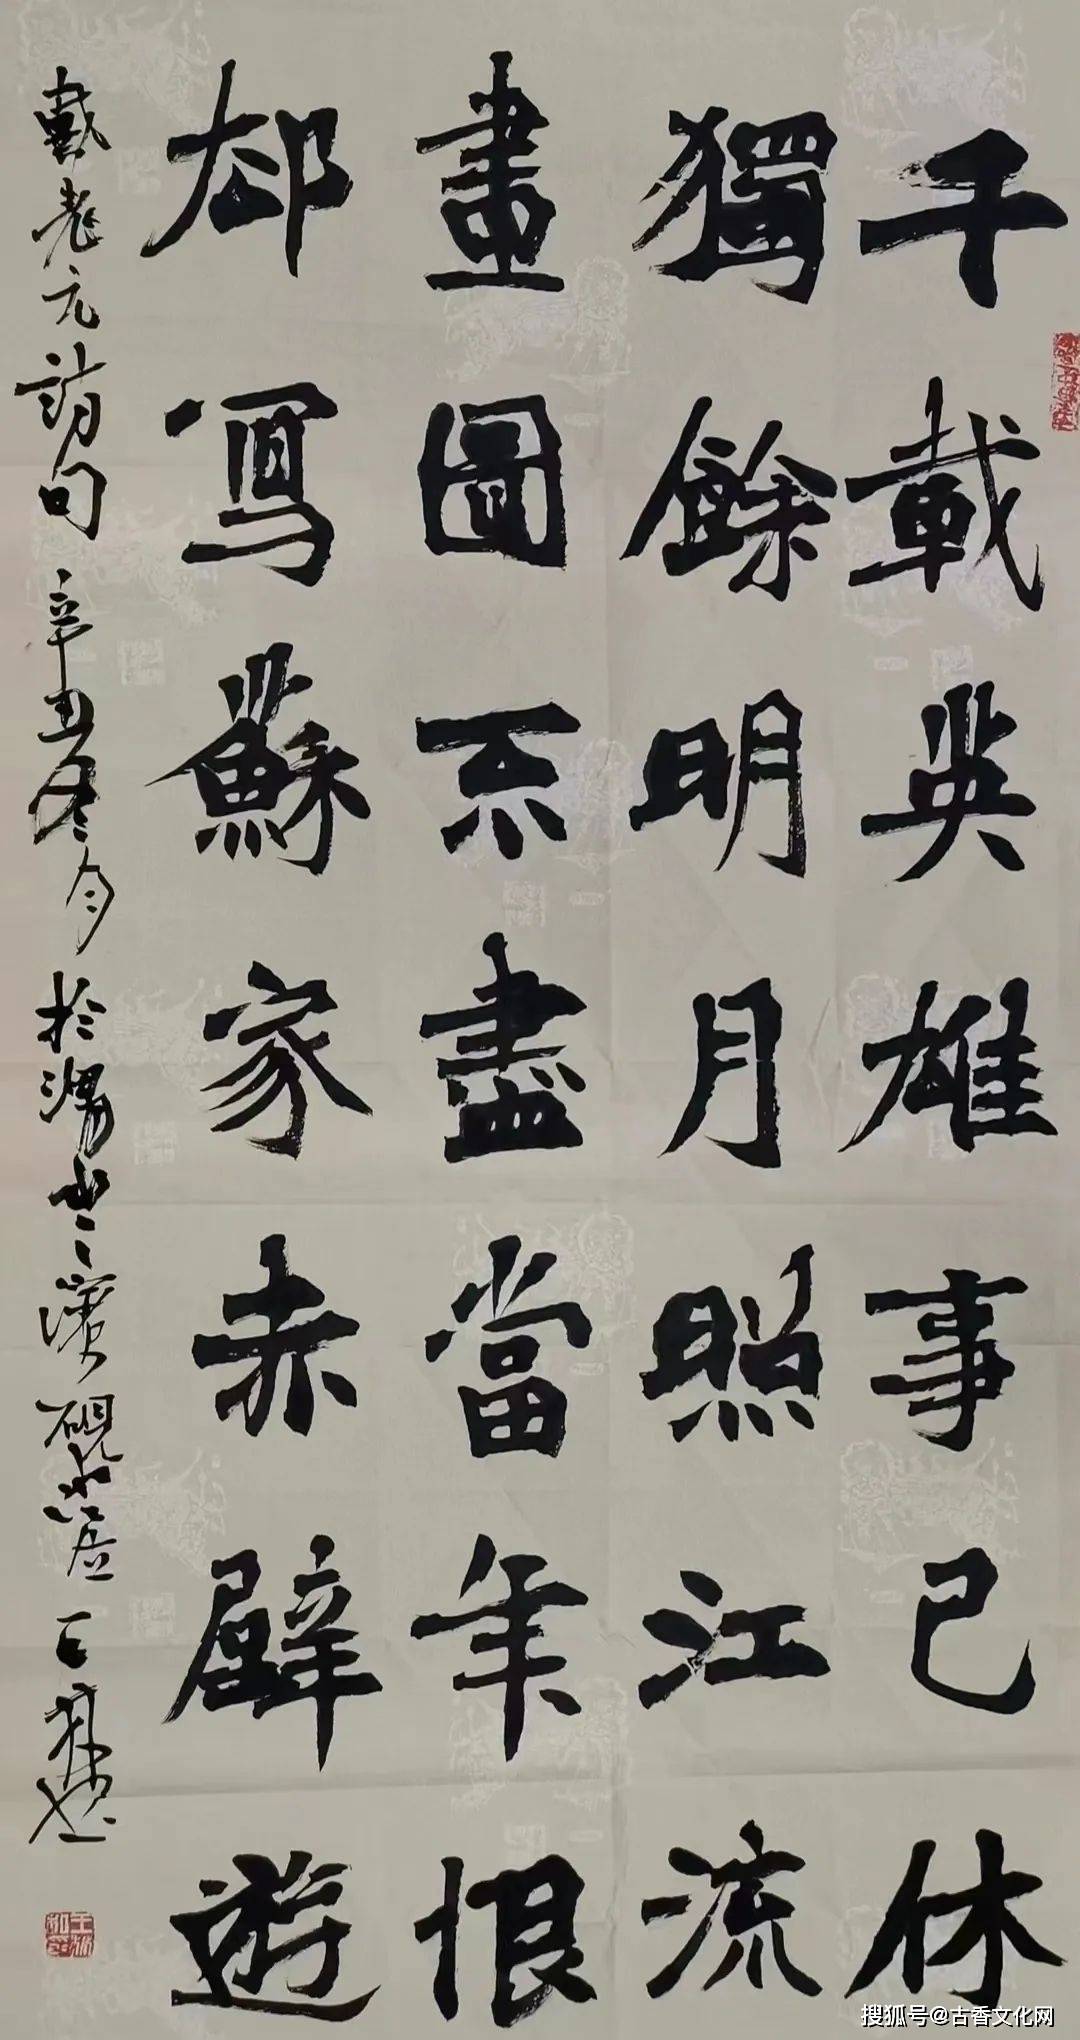 千載英雄事已休
獨餘明月照江流
畫圖不盡當年恨
却寫蘇家赤壁遊
戴老元詩句 辛丑冬月 於
硯
搜狐号@古香文化网